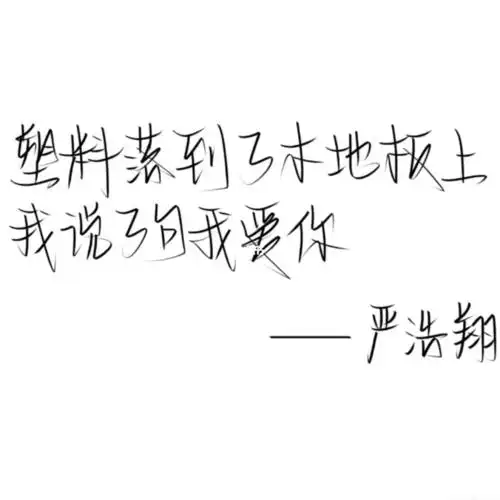 塑料落到了木地板上
我说了句我爱你
——严浩翔